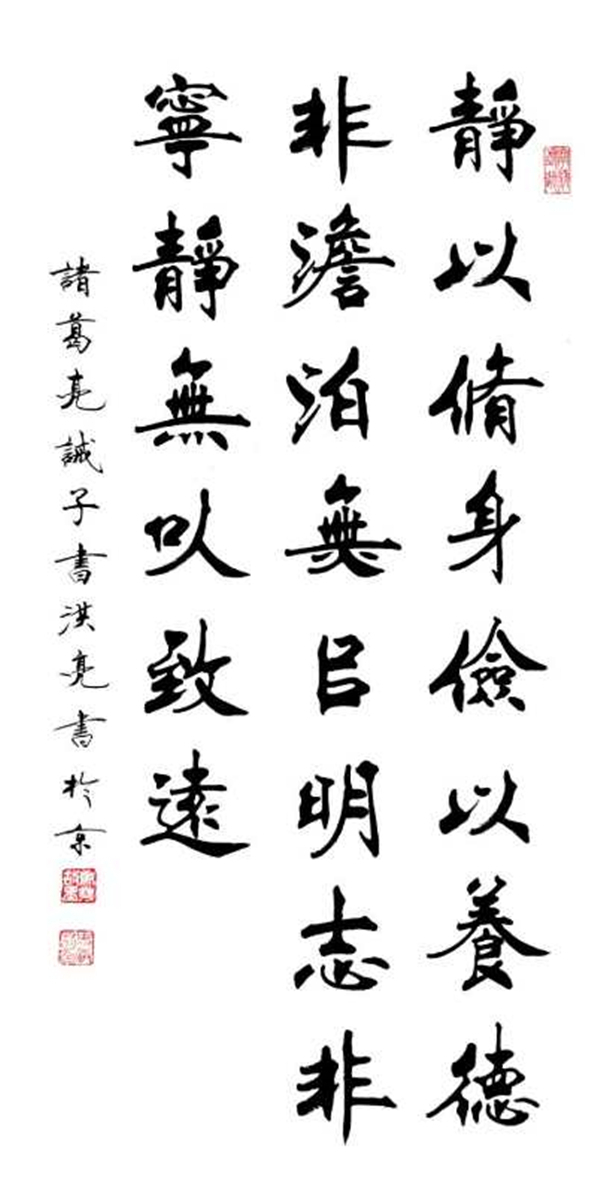 靜以脩身儉以養德
非澹泊無㠯明志非
寧靜無以致遠
諸葛亮誡子書洪亮書於京